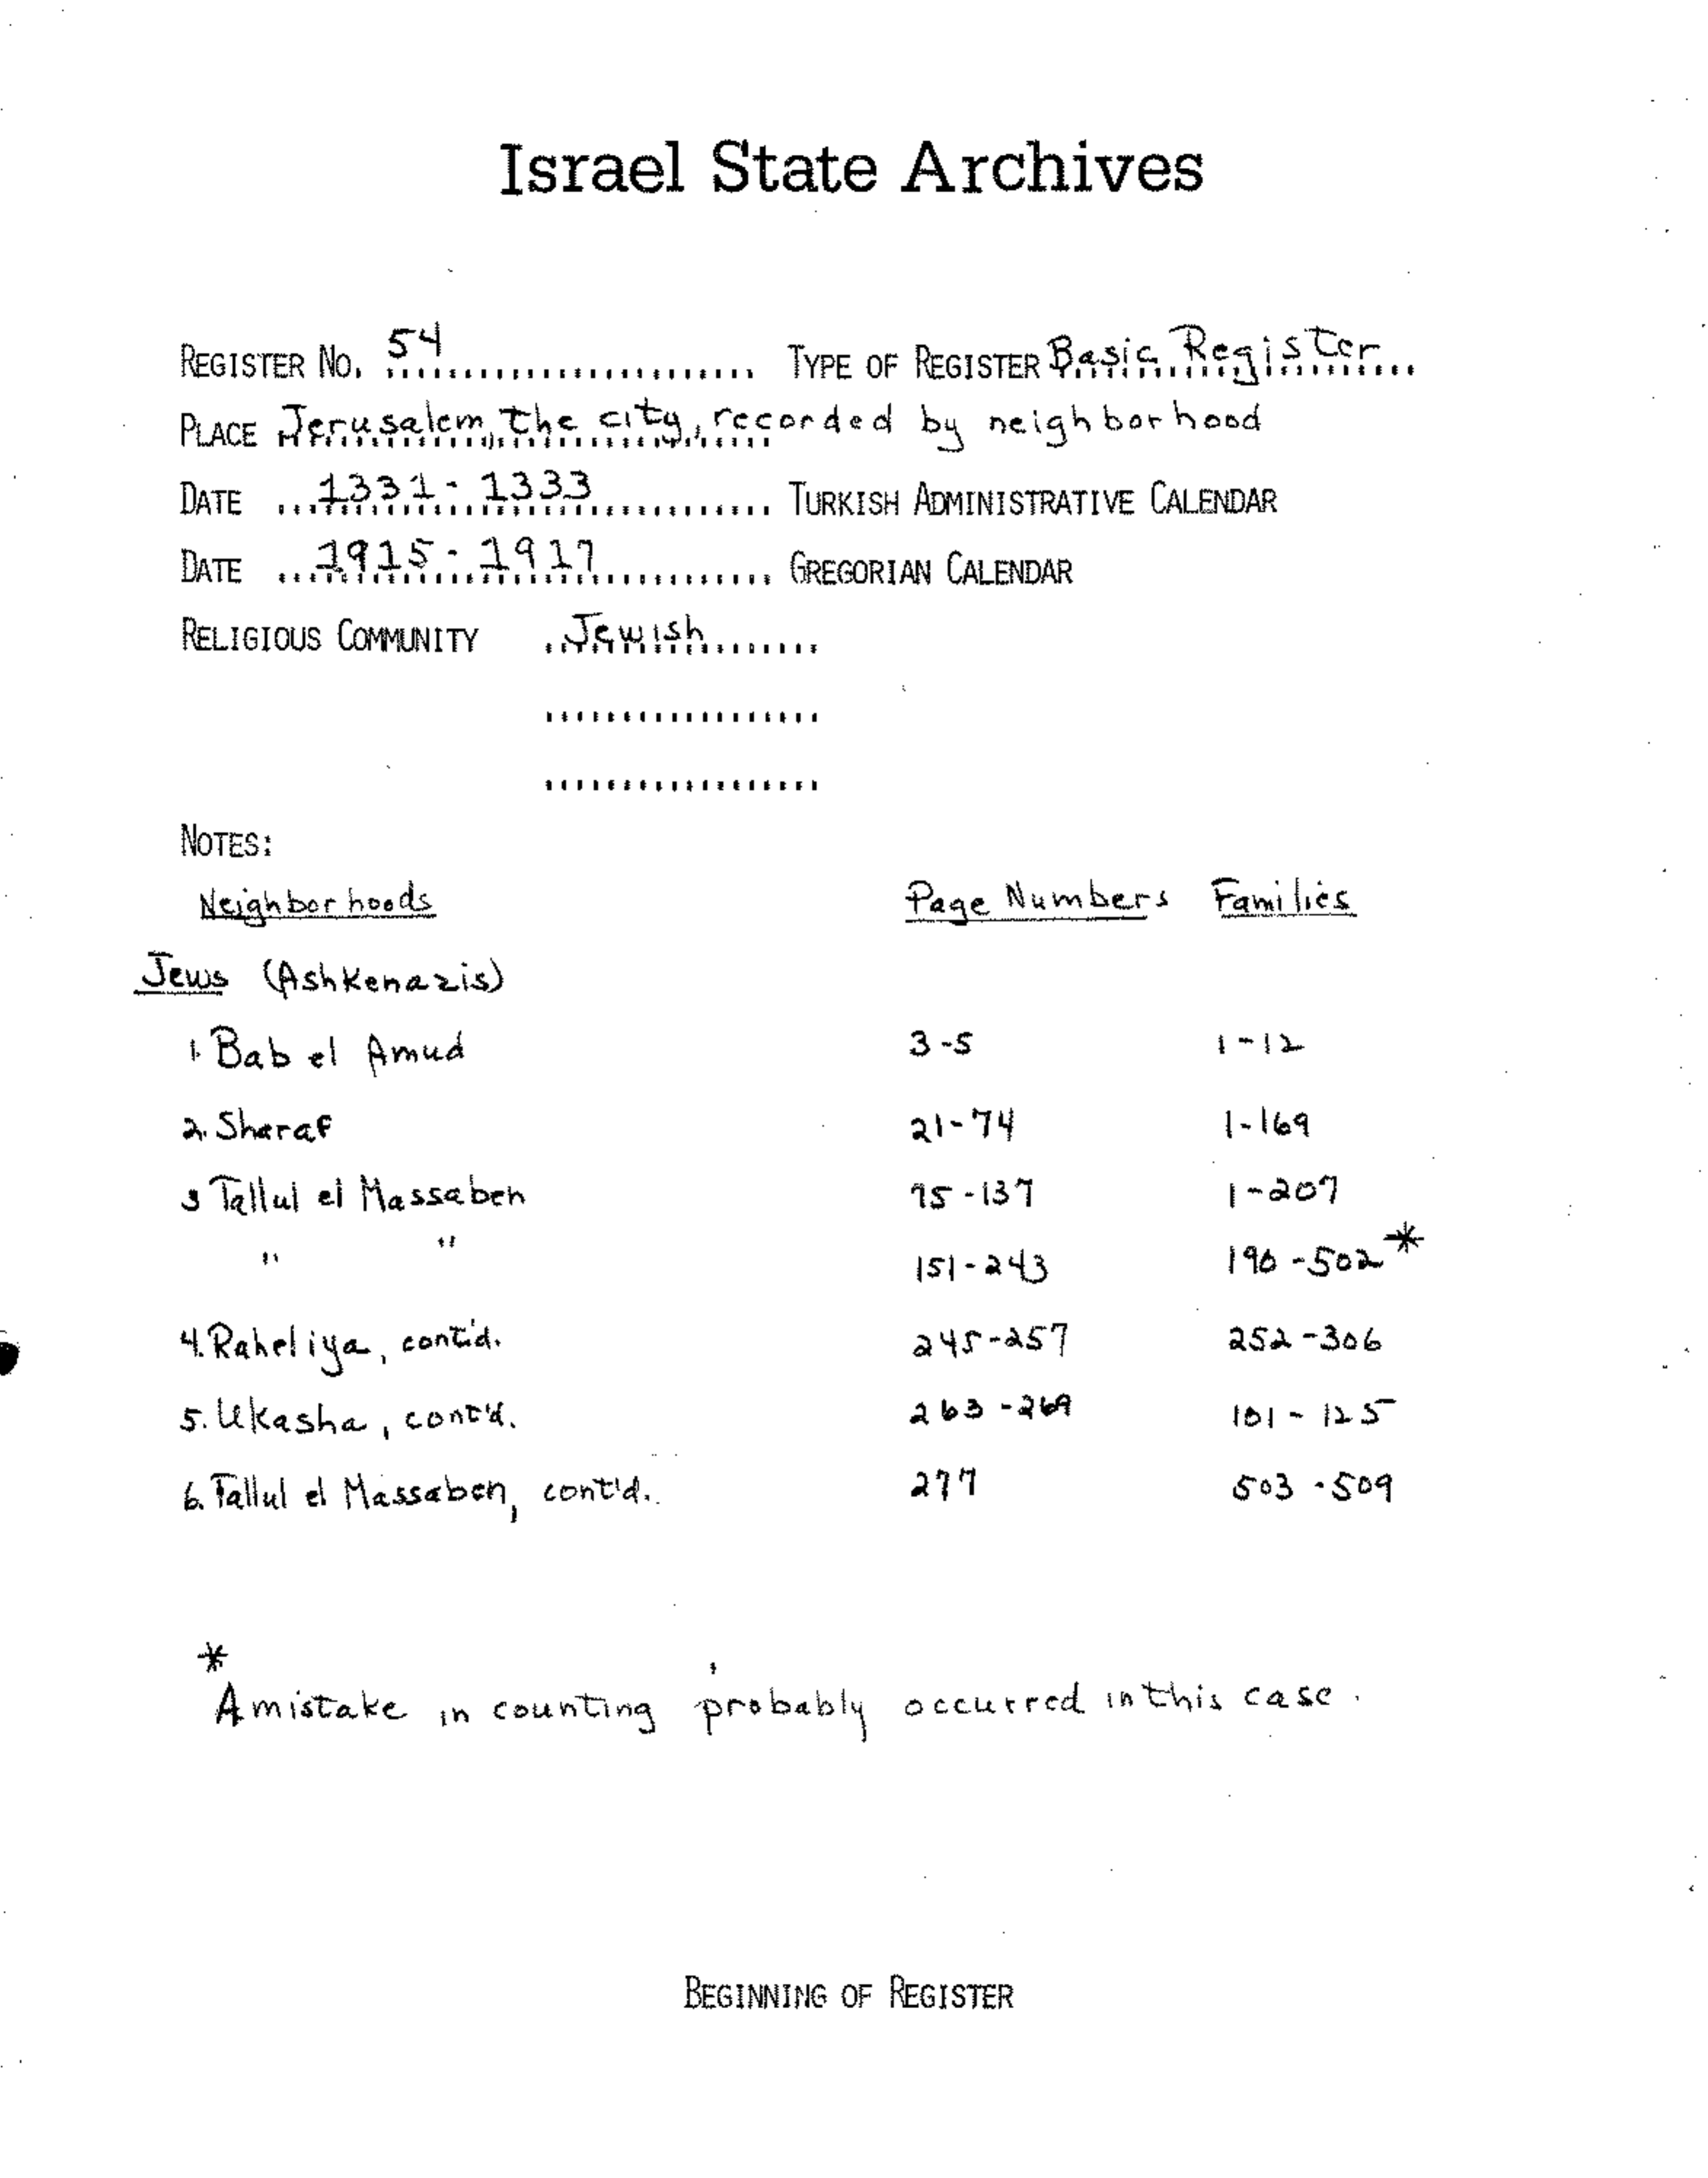 Israel State Archives
REGISTER NO. 54 TYPE OF REGISTER Basic Register
PLACE Jerusalem, the city, recorded by neighborhood
DATE 1331 - 1333 TURKISH ADMINISTRATIVE CALENDAR
DATE 1915 - 1917 GREGORIAN CALENDAR
RELIGIOUS COMMUNITY Jewish
NOTES:
Neighborhoods Page Numbers Families
Jews (Ashkenazis)
1. Bab el Amud 3-5 1-12
2. Sharaf 21-74 1-169
3 Tallul el Massaben 75-137 1-207
" " 151-243 190-502*
4. Raheliya, cont'd. 245-257 252-306
5. Ukasha, cont'd. 263-269 101-125
6. Tallul el Massaben, cont'd. 277 503-509
*
A mistake in counting probably occurred in this case.
BEGINNING OF REGISTER